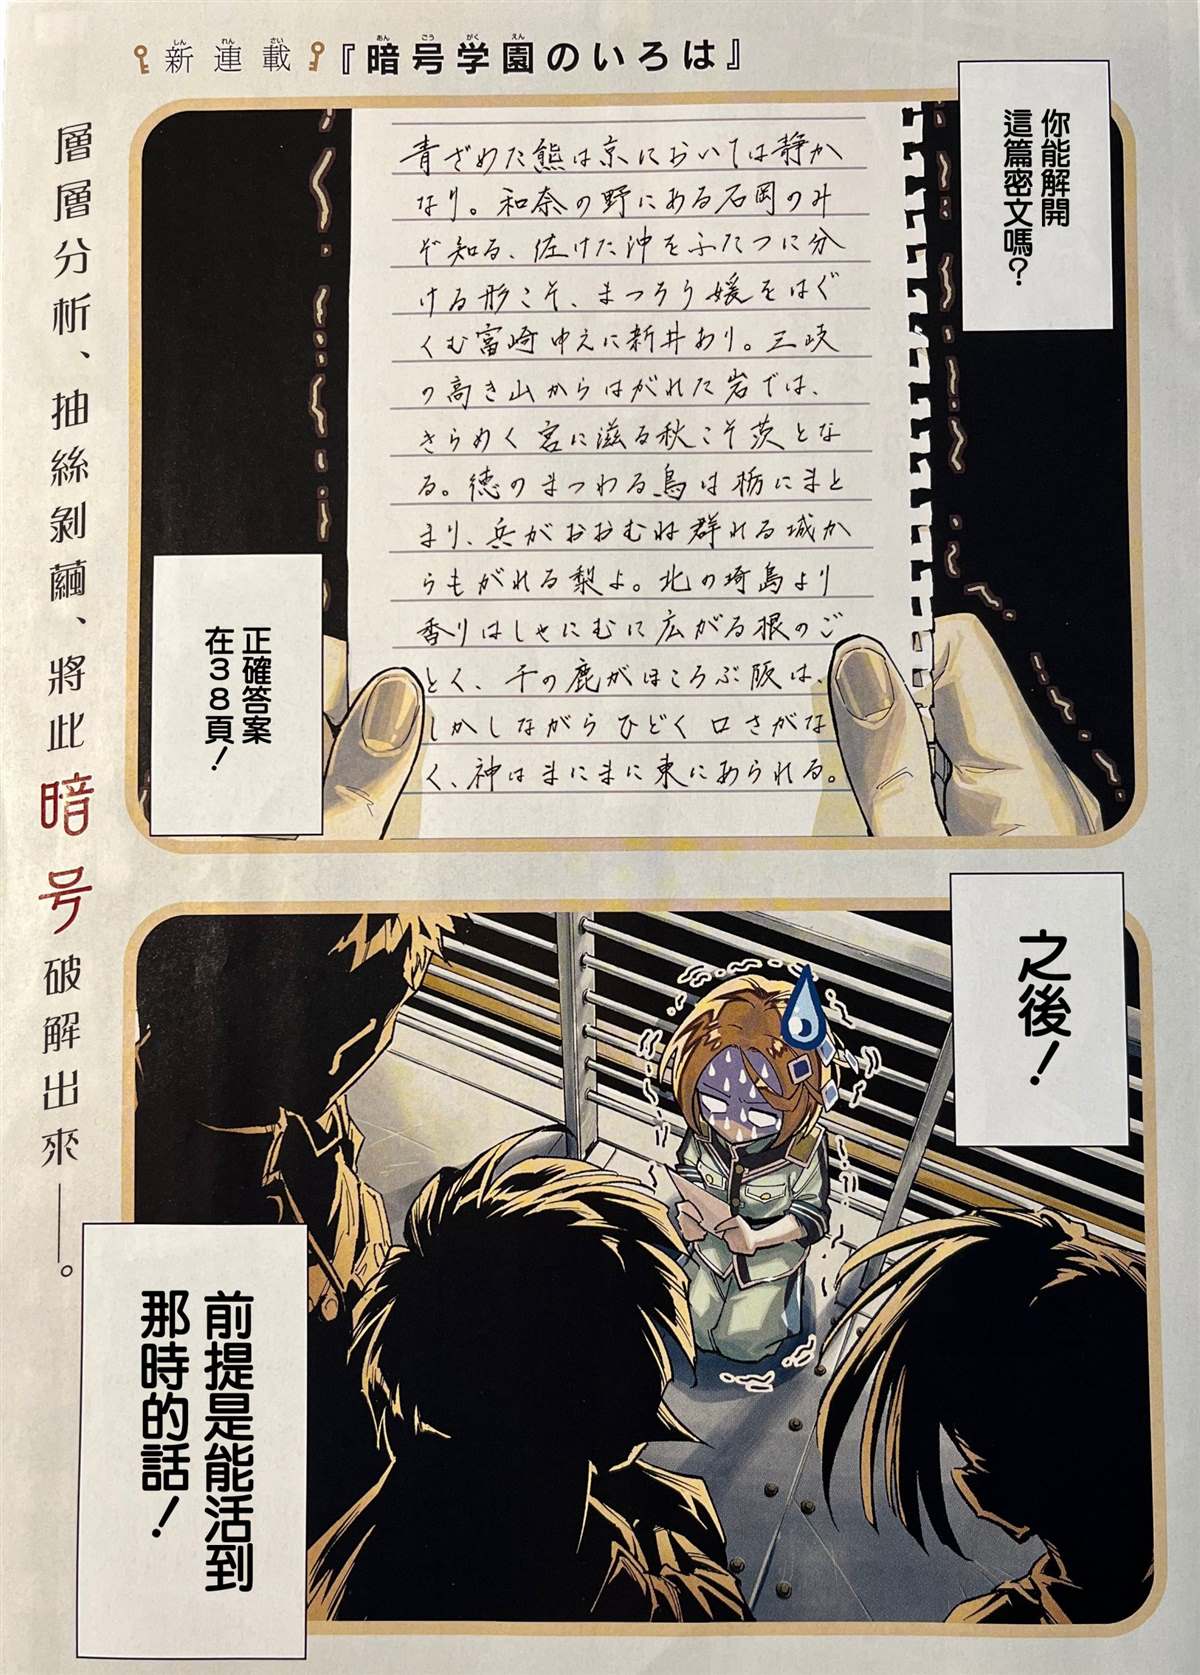 新連載『暗号学園のいろは』
しんれんさい
あんごうがくえん
你能解開
這篇密文嗎？
青ざめた熊は京においては静か
なり。和奈の野にある石岡のみ
ぞ知る、佐けた沖をふたつに分
ける形こそ、まつろう媛をはぐ
くむ富崎ゆえに新井あり。三岐
の高き山からはがれた岩では、
さらめく宮に滋る秋こそ茨とな
る。徳のまつわる鳥は栃にまと
まり、兵がおおむね群れる城か
らもがれる梨よ。北の埼島より
香りはしゃにむに広がる根のご
とく、千の鹿がほころぶ阪は、
しかしながらひどく口さがな
く、神はまにまに東にあられる。
正確答案
在38頁！
層層分析、抽絲剝繭、將此暗号破解出來——。
之後！
前提是能活到
那時的話！